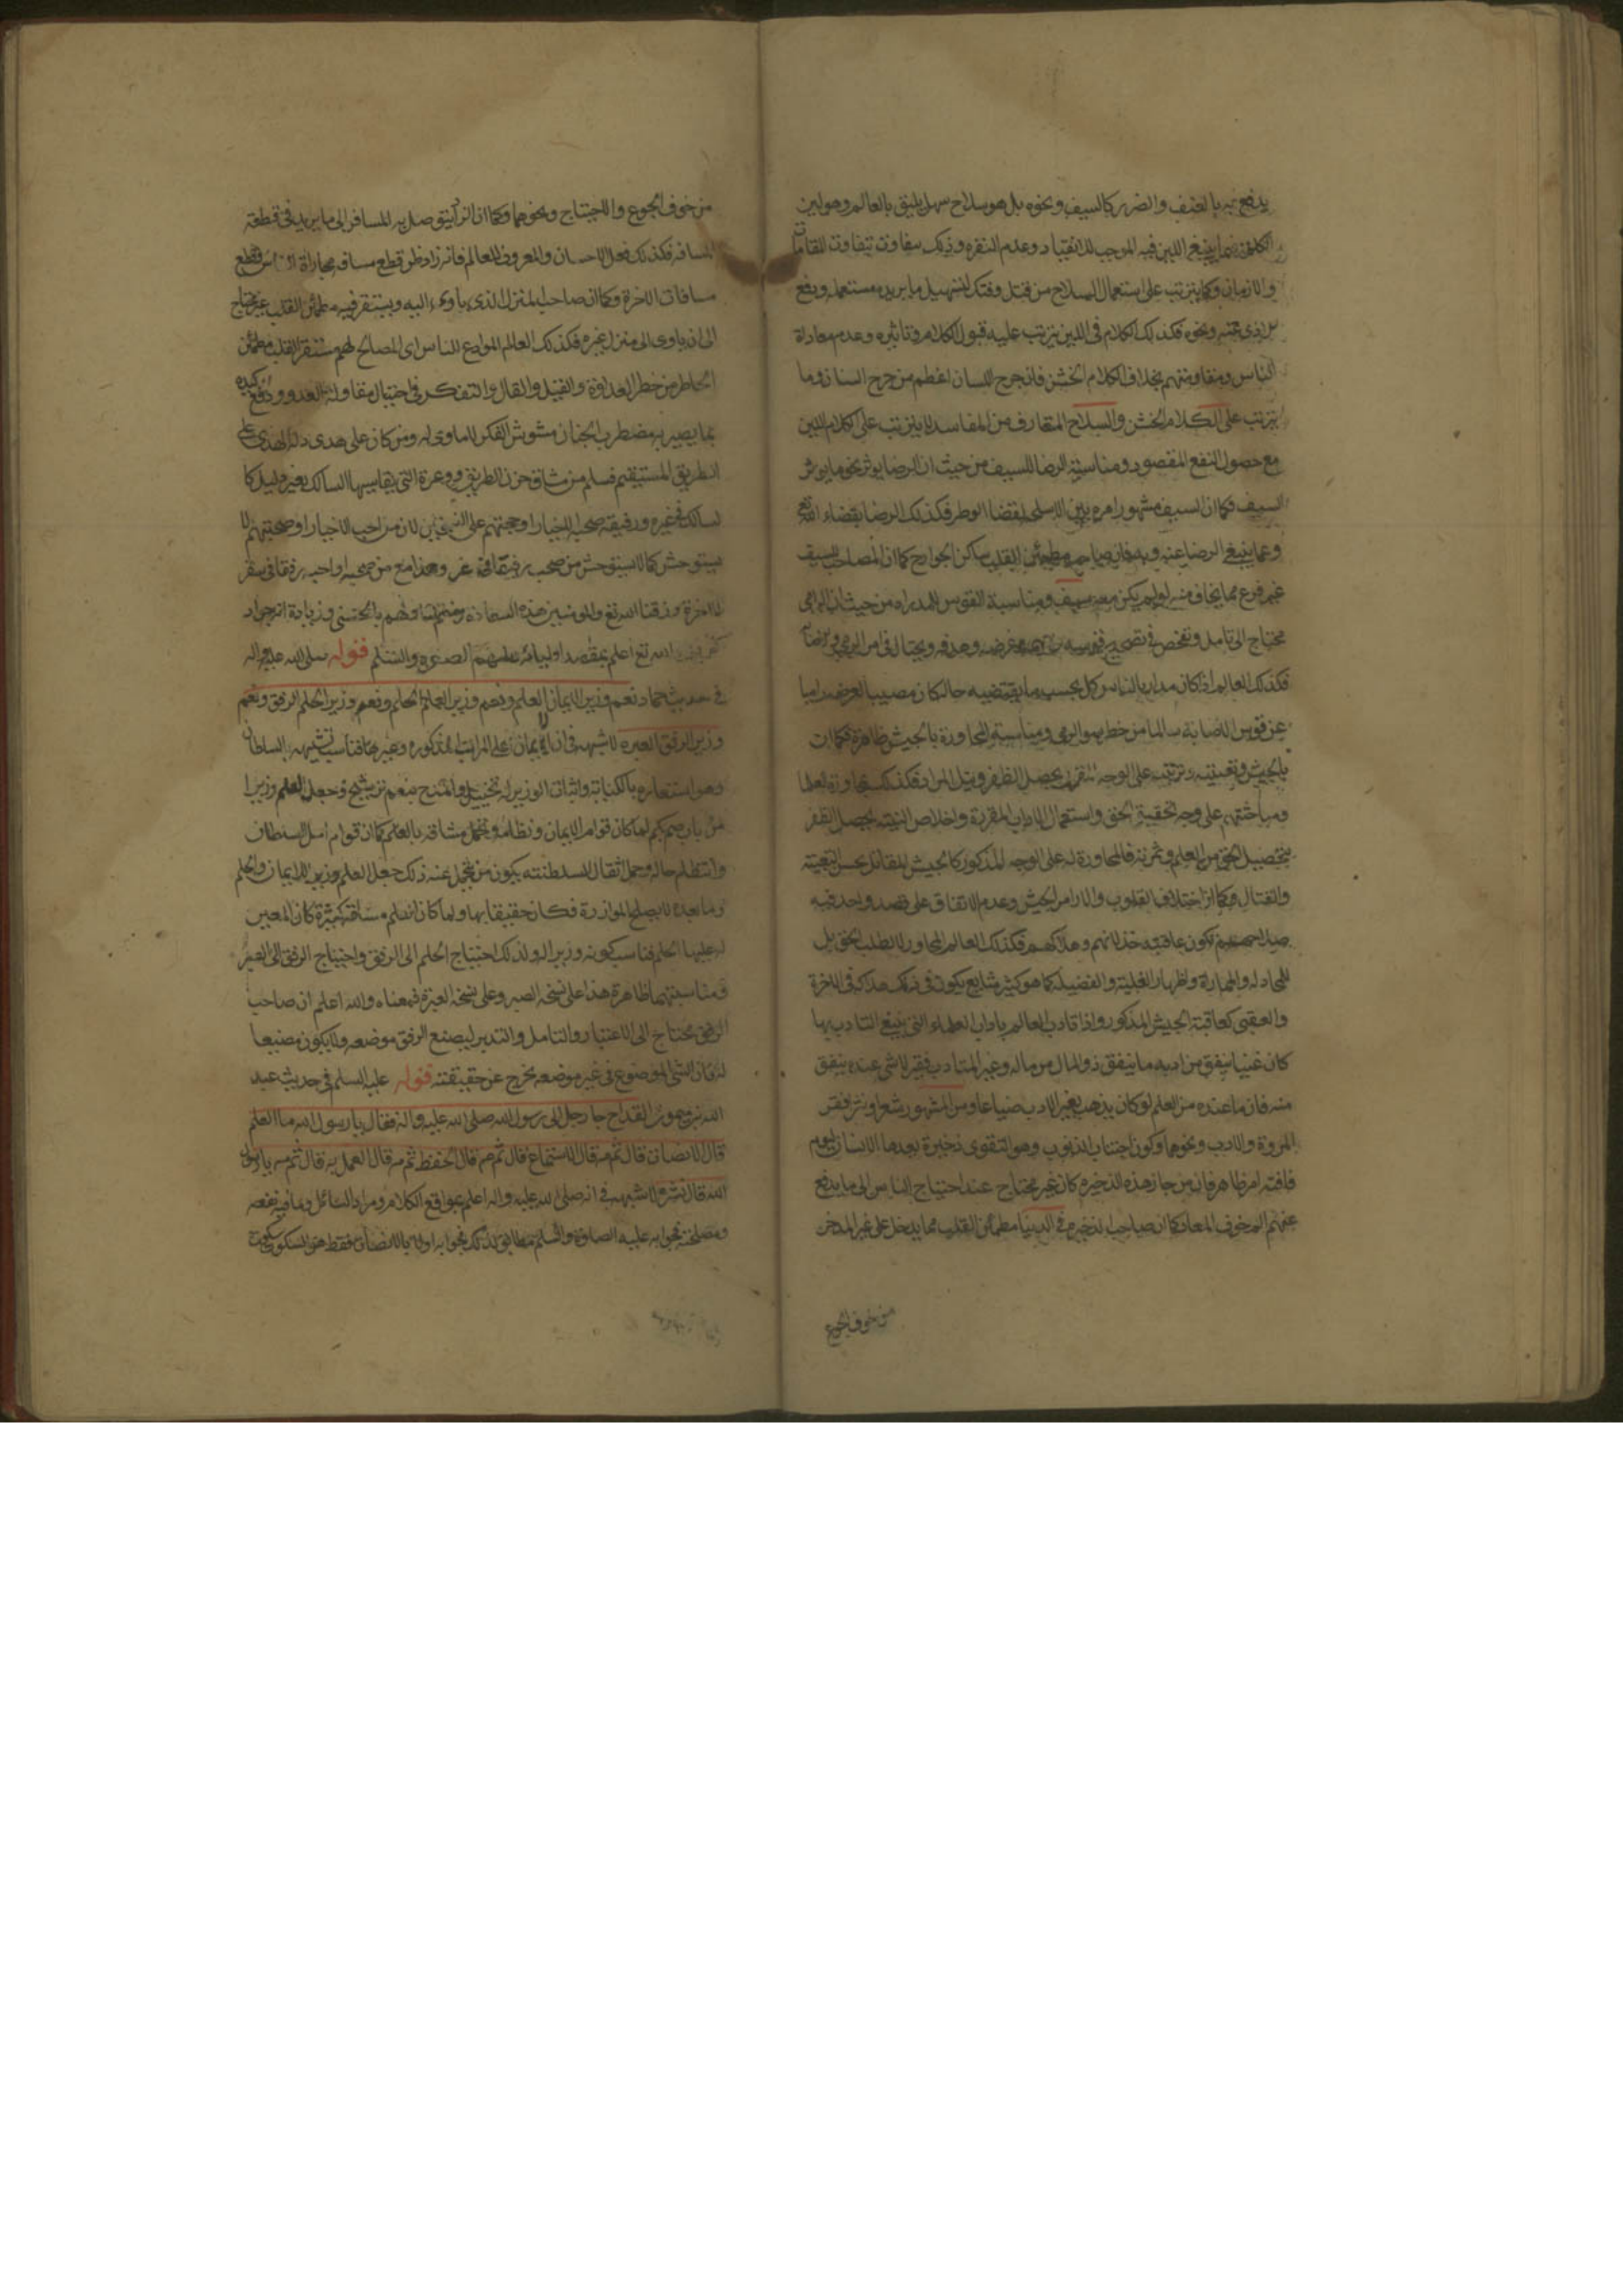 يدفع به بالعنف والضرر كالسيف ونحوه بل هو سلاح سهل يليق بالعالم وهو لين
الكلمة فيما ينبغي اللين فيه الموجب للانقياد وعدم النفره وذلك يتفاوت بتفاوت المقامات
والازمان وكما يترتب على استعمال السلاح من قتل وفتك لتسهيل ما يريده مستعمله ودفع
الاذى عنه ونحوه فكذلك الكلام في اللين يترتب عليه قبول الكلام وتاثيره وعدم معاداة
الناس ومقاومتهم بخلاف الكلام الخشن فان جرح اللسان اعظم من جرح السنان وما
يترتب على الكلام الخشن والسلاح المتعارف من المفاسد لا يترتب على الكلام اللين
مع حصول النفع المقصود ومناسبة الرضا للسيف من حيث ان الرضا يوثر نحو ما يوثر
السيف فكما ان السيف مشهور امره بين الاسلحه لقضا الوطر فكذلك الرضا بقضاء الله تع
وعما ينبغي الرضا عنه وبه فان صاحبه مطمئن القلب ساكن الجوارح كما ان المصاحب للسيف
غير فزع مما يخاف منه لو لم يكن معه سيف ومناسبة القوس للمداراه من حيث ان الرامي
محتاج الى تامل وتفحص في تصحيح قوسه غرضه وهدفه ويحتال في امر الرمي
فكذلك العالم اذا كان مداريا للناس كل بحسب ما يقتضيه حاله كان مصيبا لغرضه راميا
عن قوس الاصابة سالما من خطر سوالرمي ومناسبة المحاورة بالجيش ظاهرة فكما ان
بالجيش وتعبيته وترتيبه على الوجه المقرر يحصل الظفر ونيل المراد فكذلك بمحاورة العلما
ومباحثتهم على وجه الحقية الحق واستعمال الاداب المقررة واخلاص النية يحصل الظفر
بتحصيل الحق من العلم وثمرته فالمحاورة له على الوجه المذكور كالجيش للمقاتل بحسن التعبية
والقتال فكما ان اختلاف القلوب والارا من الجيش وعدم الاتفاق على قصد واحد فيه
تكون عاقبته خذلانهم وهلاكهم فكذلك العالم المحاور لا لطلب الحق بل
للمجادلة والمماراة واظهار الغلبة والفضيلة كما هو كثير شايع يكون في ذلك هلاكه في الاخرة
والعقبى كعاقبة الجيش المذكور واذا تادب العالم باداب العلماء التي ينبغي التادب بها
كان غنيا ينفق من ادبه ما ينفق ذو المال من ماله وغير المتادب فقير لا شي عنده ينفق
منه فان ما عنده من العلم لو كان يذهب بغير الادب ضياعا ومن المشهور شعرا ونثرا فقر
المروة والادب ونحوهما وكون اجتناب الذنوب وهو التقوى ذخيرة يعدها الانسان ليوم
فاقته امر ظاهر فان من حاز هذه الذخيره كان غير محتاج عند احتياج الناس الى ما يدفع
عنهم الم خوف المعاد كما ان صاحب الذخيره في الدنيا مطمئن القلب مما يدخل على غير المدخر
من خوف الجوع
من خوف الجوع والاحتياج ونحوهما وكما ان الزاد يتوصل به المسافر الى ما يريد في قطعه
المسافه فكذلك فعل الاحسان والمعروف للعالم فانه زاد ظرف قطع مسافة مجاراة الناس وقطع
مسافات الاخرة وكما ان صاحب المنزل الذي ياوي اليه ويستقر فيه مطمئن القلب غير محتاج
الى ان ياوى الى منزل غيره فكذلك العالم الموادع للناس اى المصالح لهم مستقر القلب مطمئن
الخاطر من خطر العداوة والقيل والقال والتفكر في احتيال مقاولة العدو ودفع كيده
بما يصير به مضطرب الجنان مشوش الفكر لا ماوى له ومن كان على هدى دله الهدى على
الطريق المستقيم فسلم من مشاق حزن الطريق ووعره التي يقاسيها السالك بغير دليل كا
لسالك في غيره ورفيقه صحبة الاخيار او محبتهم على النسختين لان من احب الاخيار او صحبتهم لا
يستوحش كما لا يستوحش من صحب رفيقا في سفر وهذا مع من صحبه او احبه رفقا في سفر
الاخرة رزقنا الله تع والمومنين هذه السعاده وختم لنا ولهم بالحسنى وزيادة انه جواد
كريم والله تع اعلم بمقصد اوليائه عليهم الصلوة والسلم قوله صلى الله عليه واله
في حديث حماد نعم وزير الايمان العلم ونعم وزير العلم الحلم ونعم وزير الحلم الرفق ونعم
وزير الرفق العبره لا شبهه في ان الايمان اعلى المراتب المذكوره وغيرها فناسب تشبيهه بالسلطان
وهو استعاره بالكناية واثبات الوزير له تخييل والمدح بنعم ترشيح وجعل العلم وزيرا
من باب صم بكم لما كان قوام الايمان ونظامه وتحمل مشاقه بالعلم كما ان قوام امر السلطان
وانتظام حاله وحمل اثقال السلطنته يكون من يتحمل عنه ذلك جعل العلم وزيرا للايمان والحلم
وما بعده لا يصلح للموازرة فكان حقيقا بها ولما كان للعلم مشاق كثيرة كان المعين
له عليها الحلم فناسب كونه وزيرا له ولذلك احتياج الحلم الى الرفق واحتياج الرفق الى الصبر
ومناسبتهما ظاهرة هذا على نسخه الصبر وعلى نسخه العبرة فمعناه والله اعلم ان صاحب
الرفق محتاج الى الاعتبار والتامل والتدبر ليضع الرفق موضعه ولا يكون مضيعا
له فان الشي الموضوع في غير موضعه يخرج عن حقيقته قوله عليه السلم في حديث عبد
الله بن ميمون القداح جا رجل الى رسول الله صلى الله عليه واله فقال يا رسول الله ما العلم
قال الانصات قال ثم مه قال الاستماع قال ثم مه قال الحفظ ثم مه قال العمل به قال ثم مه يا رسول
الله قال نشره لا شبهه في انه صلى الله عليه واله اعلم بمواقع الكلام ومراد السائل وما فيه نفعه
ومصلحته فجوابه عليه الصلوة والسلم مطابق لذلك فجوابه اولا بالانصات فقط هو السكوت